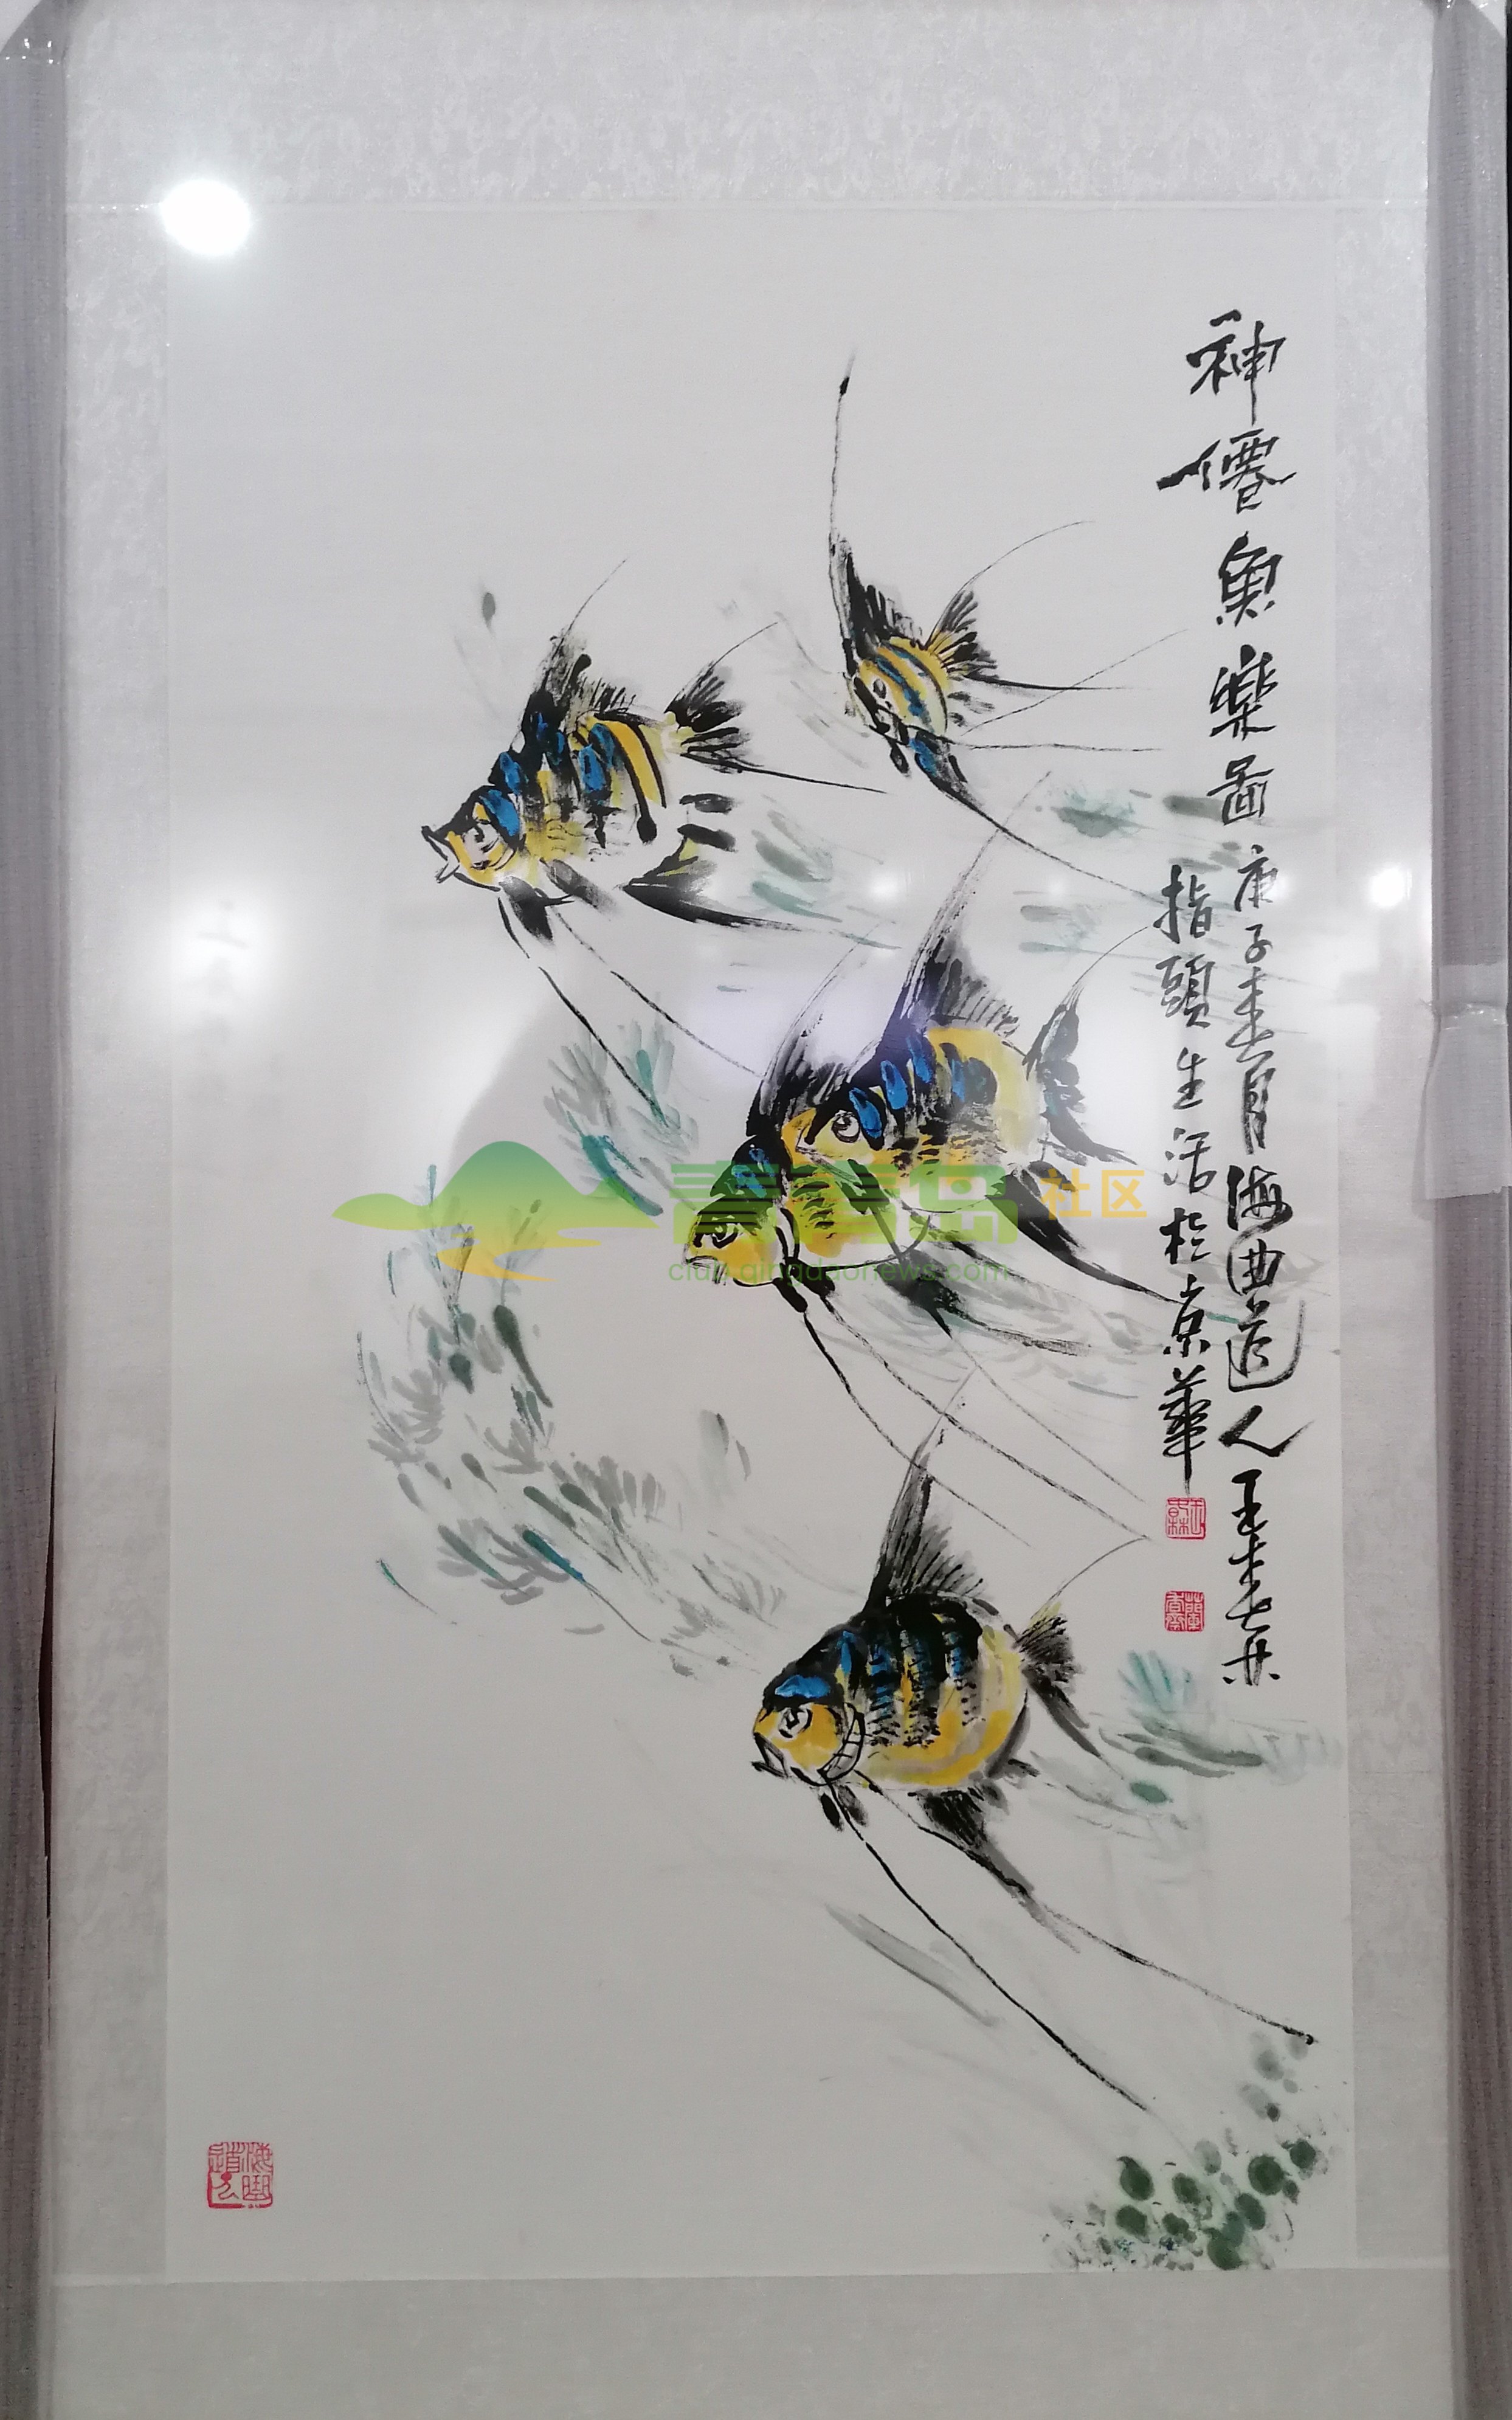 神僊魚樂圖
庚子春月海曲道人王来
指頭生活於京華
青青岛社区
club.qingdaonews.com